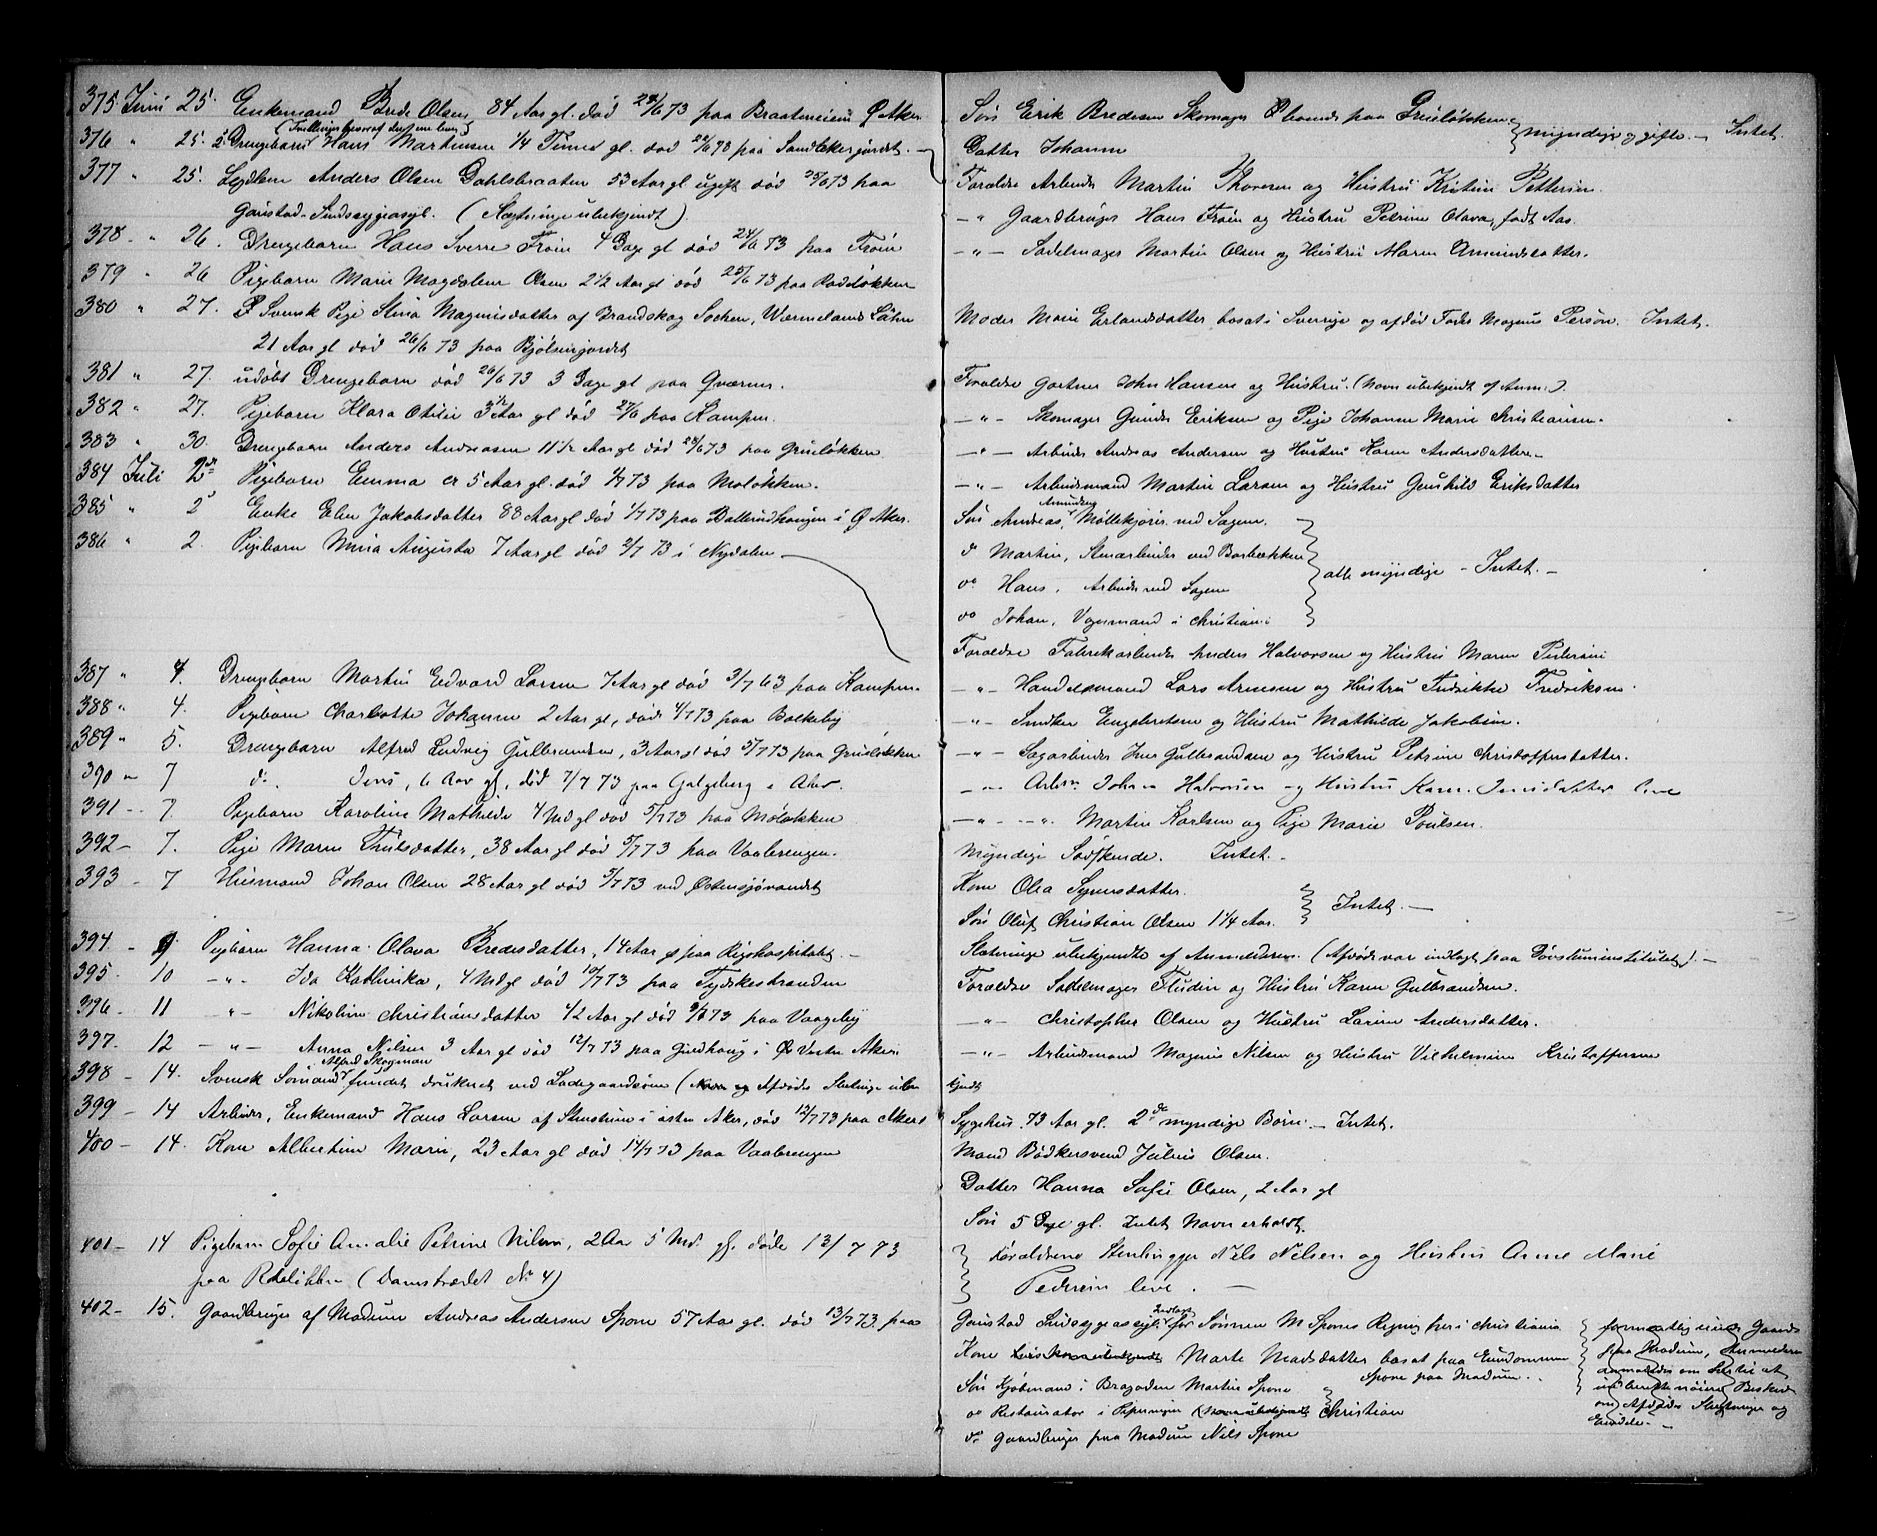 375. Juni 25. Enkemand Brede Olsen 84 Aar gl. død 24/6 73 paa Braateneiet Ø Aker
(Tvillinger hvoraf den ene lever)
376 " 25. Drengebarn Hans Martinsen 1/4 Times gl. død 22/6 73 paa Sandakergjordet.
377 " 25. Anders Olsen Dahlsbraaten 53 Aar gl ugift død 23/6 73 paa
Gaustad Sindsygeasyl. (Slægtninge ubekjendt).
378 " 26. Drengebarn Hans Sverre Frøen 4 Dage gl død 24/6 73 paa Frøen
379 " 26 Pigebarn Marie Magdalene Olsen 2 1/2 Aar gl død 25/6 73 paa Rodeløkken
380 " 27. Svensk Pige Stina Magnusdatter af Brandskog Sochen, Wærmelands Lähn
21 Aar gl død 26/6 73 paa Bjølsengjordet
381 " 27. udøbt Drengebarn død 26/6 73 3 Dage gl paa Qværner.
382 " 27. Pigebarn Klara Otilie 3 1/2 Aar gl død 27/6 paa Kampen.
383 " 30. Drengebarn Anders Andreasen 11 1/2 Aar gl død 28/6 73 paa Grünløkken
384 Juli 2den Pigebarn Emma 5 Aar gl. død 1/7 73 paa Moløkken.
385 " 2 Enke Elen Jakobsdatter 88 Aar gl død 1/7 73 paa Ballerudhougen i Ø Aker.
386 " 2. Pigebarn Mina Augusta 7 Aar gl død 2/7 73 i Nydalen
387 " 4. Drengebarn Martin Edvard Larsen 7 Aar gl død 3/7 63 paa Kampen.
388 " 4. Pigebarn Charlotte Johanne 2 Aar gl, død 4/7 73 paa Bakkeby
389 " 5. Drengebarn Alfred Ludvig Gulbrandsen, 3 Aar gl død 5/7 73 paa Grünløkken
390 " 7 do. Jens, 6 Aar gl, død 7/7 73 paa Galgeberg i Aker.
391 - 7. Pigebarn Karoline Mathilde 4 Md gl død 5/7 73 paa Moløkken
392 - 7. Pige Maren Trulsdatter, 38 Aar gl død 5/7 73 paa Vaalerengen.
393 - 7 Huusmand Johan Olsen 28 Aar gl død 5/7 73 ved Østensjøvandet
394. - 9. Pigebarn Hanna Olava Bredesdatter, 14 Aar paa Rigshospitalet.
395. 10 - " - Ida Kathinka, 4 Md gl død 10/7 73 paa Tydskestranden
396 - 11 - " - Nikoline Christiansdatter 42 Aar gl død 9/7 73 paa Vaageby
397. - 12 - " - Anna Nilsen 3 Aar gl død 12/7 73 paa i Ø Vestre Aker
Alfred Skogman
398 - 14. Svensk Sømand fundet druknet ved Ladegaardsøen (Navn og Afdødes Slægtninge ube
399 - 14 Arbeider, Enkemand Hans Larsen af i østre Aker, død 12/7 73 paa Akers
400 - 14. Kone Albertine Marie, 23 Aar gl død 14/7 73 paa Vaalerengen
401 - 14 Pigebarn Sofie Amalie Petrine Nilsen, 2 Aar 5 Md. gl. døde 13/7 73
paa Rodeløkken (Damstrædet No 4)
402 - 15. Gaardbruger af Modum Andreas Andersen Spone 57 Aar gl. død 13/7 73. paa
Søn Erik Bredesen Skomager boende paa Grünløkken } myndige og gifte. - Intet.
Datter Johanne
Forældre Arbeider Martin Thoresen og Hustru Kristine Pettersen.
- " Gaardbruger Hans Frøen og Hustru Petrine Olava, født Aas.
- " - Sadelmager Martin Olsen og Hustru Maren Amundsdatter.
Moder Marie Erlandsdatter bosat i Sverige og afdød Fader Magnus Person. Intet.
Forældre Gartner John Hansen og Hustru. (Navn ubekjendt af Anm:).
- " - Skomager Gunder Eriksen og Pige Johanne Marie Christiansen.
- " - Arbeider Andreas Andersen og Hustru Karen Andersdatter.
- " - Arbeidsmand Martin Larsen og Hustru Gunhild Eriksdatter
Amundsen
Søn Andreas, Møllekjører ved Sagene.
do Martin, Stenarbeider ved Borbækken
do Hans, Arbeider ved Sagene } alle myndige - Intet. -
do Johan, Vognmand i Christiania
Forældre Fabrikarbeider Anders Halvorsen og Hustru Maren Pedersen
- " - Handelsmand Lars Arnesen og Hustru Fredrikke Fredriksen.
- " - Snedker Engebretsen og Hustru Mathilde Jakobine.
- " - Sagarbeider Iver Gulbrandsen og Hustru Petrine Christoffersdatter.
- " - Arbm Johan Halvorsen og Hustru Karen Jensdatter leve
- " - - " - Martin Karlsen og Pige Marie Poulsen.
Myndige Sødskende. Intet. -
Kone Olea Syversdatter.
Søn Oluf Christian Olsen 1 1/4 Aar. } Intet. -
Slægtninge ubekjendte af Anmelderen. (Afdøde var indlagt paa Døvstuminstitutet). -
Forældre Sadelmager og Hustru Karen Gulbrandsen.
- " - Christopher Olsen og Hustru Larine Andersdatter.
- " - Arbeidsmand Magnus Nilsen og Hustru Vilhelmine Kristoffersen
kjendt
Sygehus. 73 Aar gl. 2de myndige Børn. - Intet.
Mand Bødkersvend Julius Olsen.
Datter Hanna Sofie Olsen, 2 Aar gl
Søn 5 Dage gl. Intet Navn erholdt.
Forældrene Stenhugger Nils Nilsen og Hustru Anne Marie
Pedersen leve. -
Gaustad Sindsygeasyl indlagt for Sønnen M Spones Regning her i Christiania
Kone Marte Madsdatter bosat paa Eiendommen
Spone paa Modum.
Søn Kjøbmand i Bragernes Martin Spone
do Restauratør i Pipervigen (Navn ubekjendt) Christian
do Gaardbruger paa Modum Nils Spone
formentlig en Gaard
paa Modum, Anmelderen
anmodedes om
indberette nøiere Besked
om Afdødes Slægtninge og
Eiendele. -